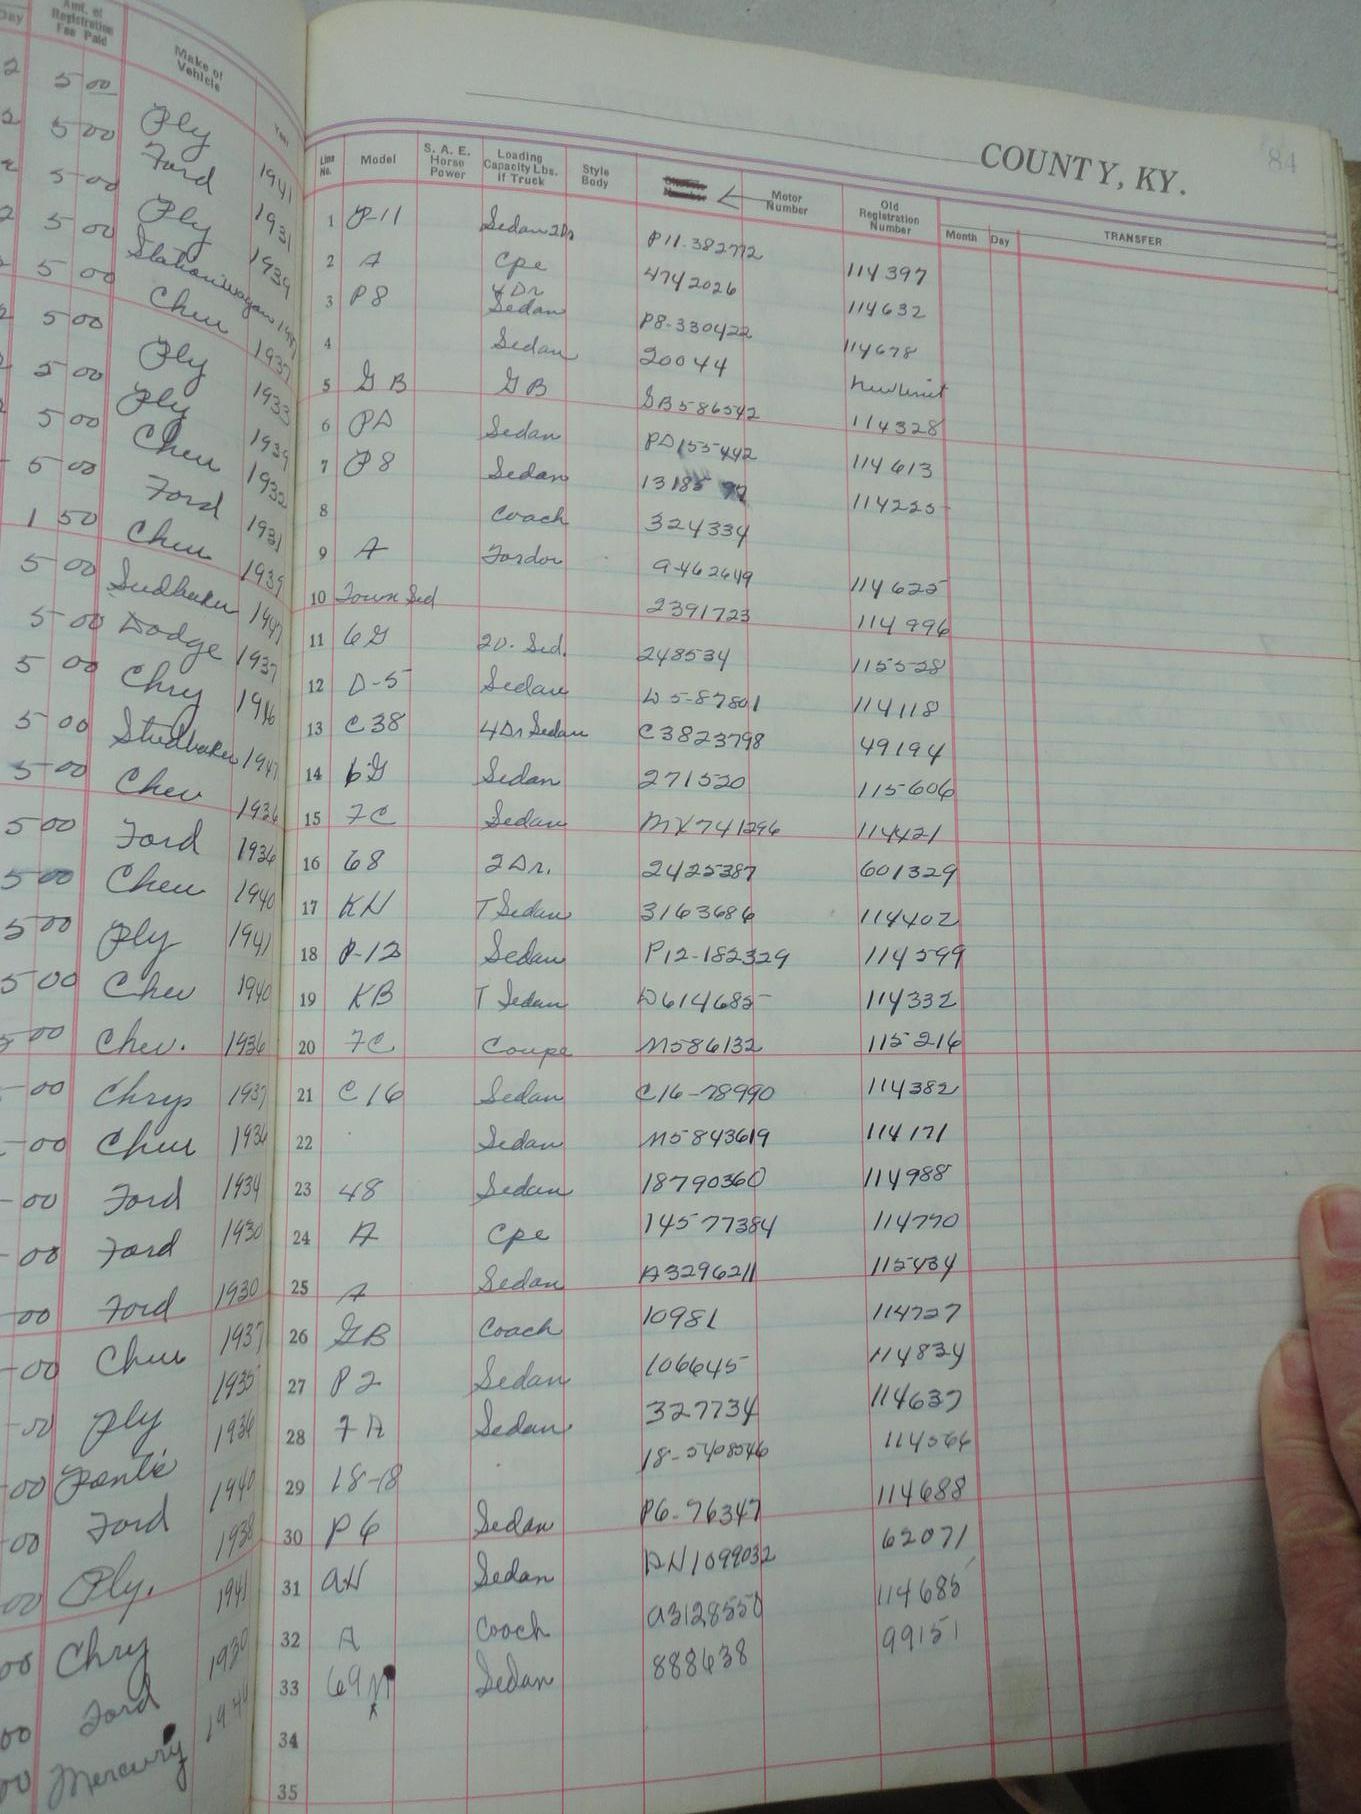 Day Amt. of Registration Fee Paid Make of Vehicle Year
2 5 00 Ply 1941
2 5 00 Ford 1931
5 00 Ply 1939
2 5 00 Stationwagon
5 00 Chev 1937
2 5 00 Ply 1933
5 00 Ply 1939
5 00 Chev 1932
5 00 Ford 1931
1 50 Chev 1939
5 00 Sudbaker 1947
5 00 Dodge 1937
5 00 Chry 1946
5 00 Studbaker 1947
5 00 Chev 1936
5 00 Ford 1936
5 00 Chev 1940
5 00 Ply 1941
5 00 Chev 1940
5 00 Chev. 1936
00 Chrys 1937
00 Chev 1936
00 Ford 1934
00 Ford 1930
00 Ford 1930
00 Chev 1937
00 Ply 1935
00 Pontic 1936
00 Ford 1940
00 Ply. 1938
00 Chry 1941
00 Ford 1930
00 Mercury
COUNTY, KY. 84
Line No. Model S. A. E. Horse Power Loading Capacity Lbs. if Truck Style Body Motor Number Old Registration Number Month Day TRANSFER
1 P-11 Sedan 2Dr P11-382772 114397
2 A Cpe 4742026 114632
3 P8 4Dr Sedan P8-330422 114678
4 Sedan 20044 New Unit
5 GB GB GB586542 114328
6 PD Sedan PD155442 114613
7 P8 Sedan 114225
8 Coach 324334
9 A Fordor A462649 114625
10 Town Sed 2391723 114996
11 6G 2D. Sed. 248534 115528
12 D-5 Sedan D5-87801 114118
13 C38 4Dr Sedan C3823798 49194
14 6G Sedan 271520 115606
15 FC Sedan MX741296 114421
16 68 2Dr. 2425387 601329
17 KH T Sedan 3163686 114402
18 P-12 Sedan P12-182329 114599
19 KB T Sedan D614685 114332
20 FC Coupe M586132 115216
21 C16 Sedan C16-78990 114382
22 Sedan M5843619 114171
23 48 Sedan 18790360 114988
24 A Cpe 14577384 114770
25 A Sedan A3296211 115434
26 GB Coach 10981 114727
27 P2 Sedan 106645 114834
28 FA Sedan 327734 114637
29 18-18 18-5408546 114566
30 P6 Sedan P6-76347 114688
31 AH Sedan AH1099032 62071
32 A Coach A3128550 114685
33 69M Sedan 888638 99151
34
35